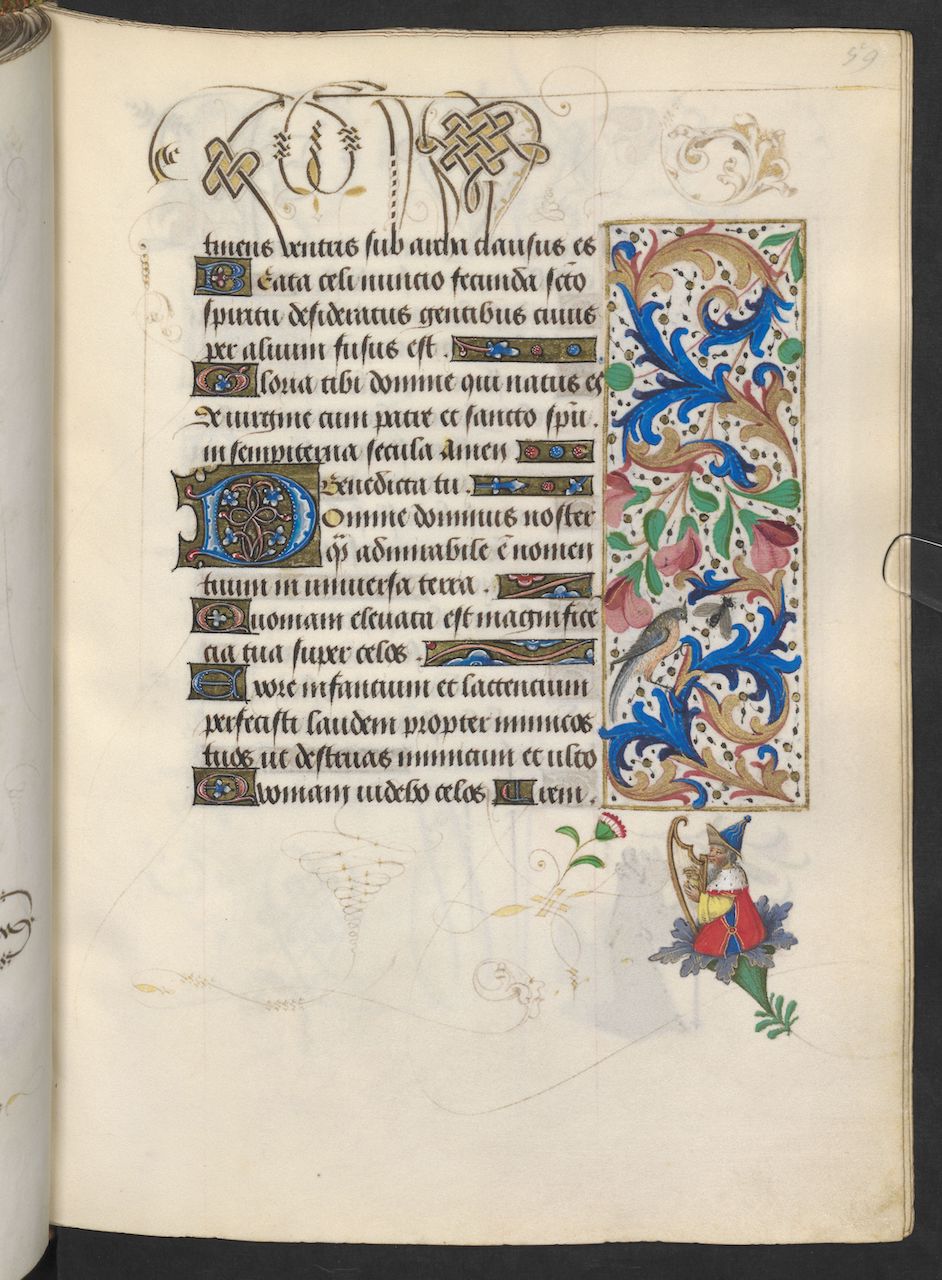 59
tinens ventris sub archa clausus es
Beata celi nuncio fecunda scto
spiritu desideratus gentibus cuius
per aluum fusus est .
Gloria tibi domine qui natus es
De virgine cum patre et sancto spũ .
in sempiterna secula Amen
Benedicta tu .
Domine dominus noster
q̃ admirabile ē nomen
tuum in vniuersa terra .
Quoniam eleuata est magnifice
cia tua super celos .
Ex ore infantium et lactencium
perfecisti laudem propter inimicos
tuos ut destruas inimicum et vlto
Quoniam videbo celos rem .